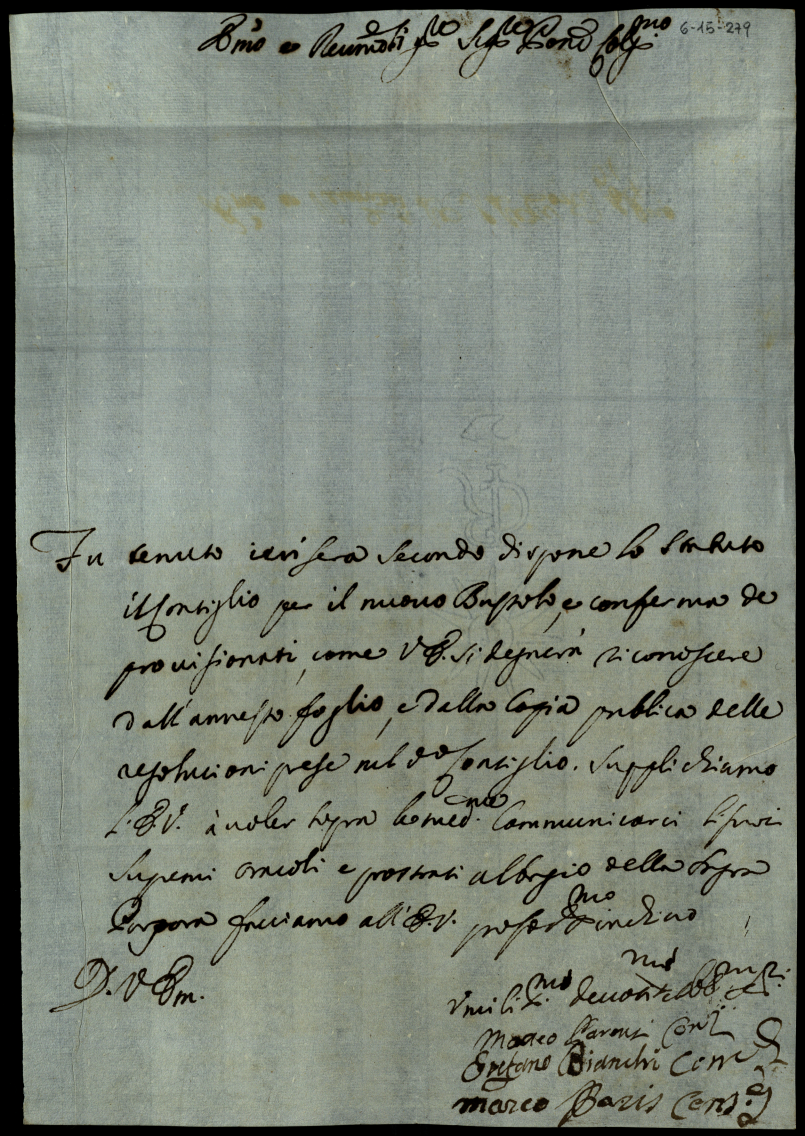 6-15-279
Emo e Reumo Sig.re Sig.re Prone Colmo
Fu tenuto ieri sera secondo dispone lo Statuto
il Consiglio per il nuovo Bussolo, e conferma de
provisionati, come V. E. si degnerà riconoscere
dall'annesso foglio, e dalla Copia publica delle
resolucioni prese nel do Consiglio. Supplichiamo
l'E. V. à voler sopra le med.me Communicarci li suoi
supremi oracoli e prostrati al bagio della Sagra
Porpora facciamo all'E. V. profondmo inchino
D. V. Em.
Vmili.mi deuotmi obbmi
Matteo Conf.
Gaetano Bianchi Conf.
Marco Paris Conf.